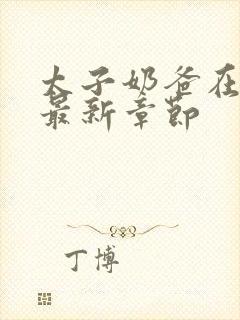 太子奶爸在
最新章节
丁博